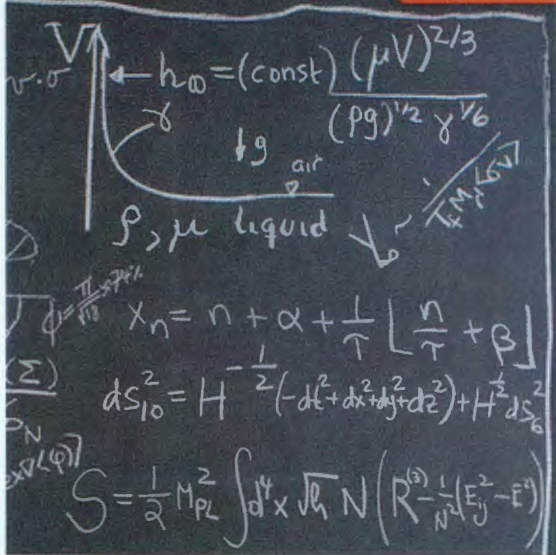 V
h∞ = (const) (μV)^2/3 / (ρg)^1/2 γ^1/6
γ
↓g
air
ρ, μ liquid
φ = π/√18 ≈ 74%
x_n = n + α + 1/τ ⌊n/τ + β⌋
(Σ)
ds²_10 = H^-1/2 (-dt² + dx² + dy² + dz²) + H^1/2 ds²_6
S = 1/2 M²_PL ∫d⁴x √h N (R^(3) - 1/N² (E²_ij - E²))